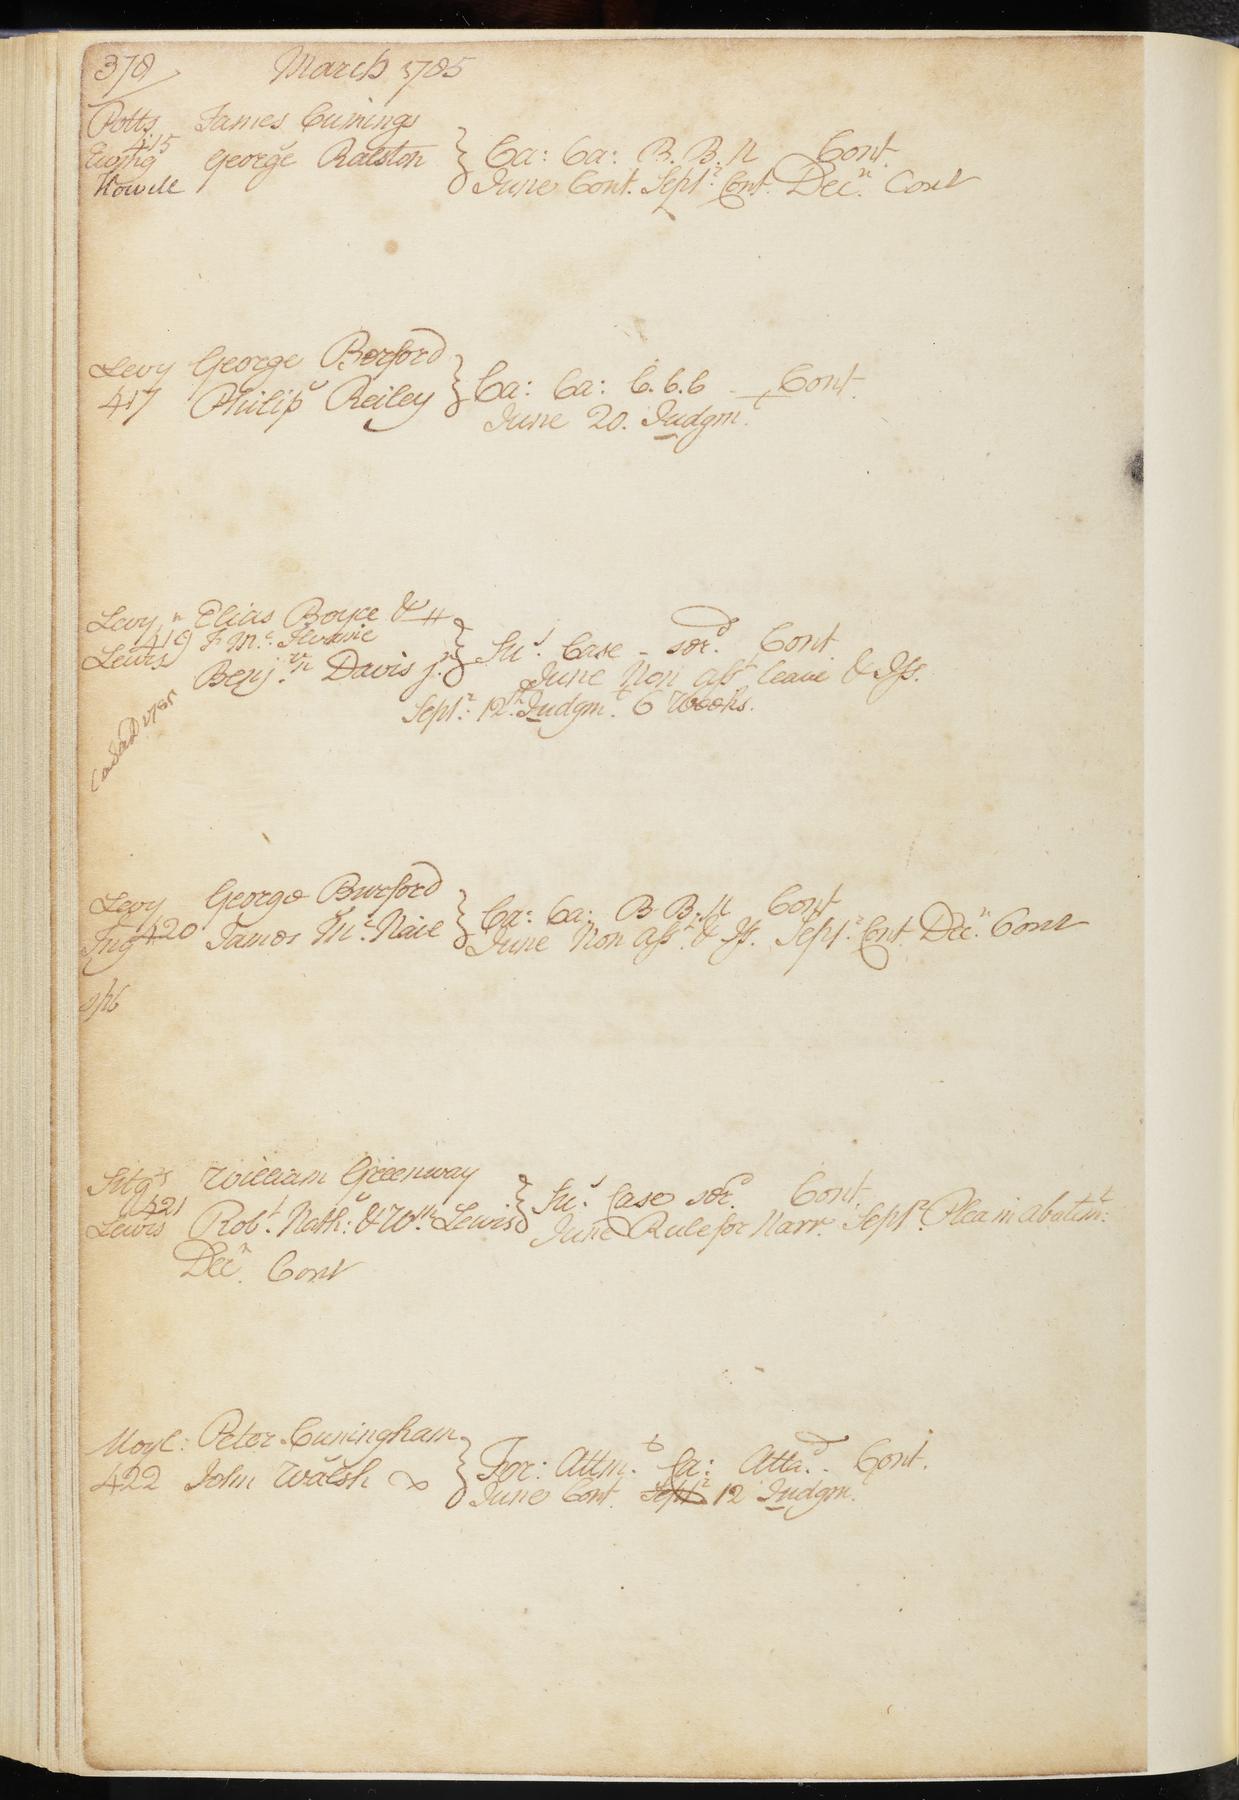 378 March 1785
Potts James Cunings
415
Ewing George Ralston } Ca: Ca: B. B. N Cont.
Howell June Cont. Septr. Cont. Decr. Cont
Levy George Berford
417 Philip Reiley } Ca: Ca: C.C.C - Cont.
June 20. Judgmt.
Levy Elias Boyce &
419 F Mc
Lewis Benjn. Davis jr. } Sus. Case - sord. Cont
June Non asst. leave & Iss.
Septr. 12th. Judgmt. 6 Weeks.
Levy George Burford
420 James Mc. Naie } Ca: Ca: B B. N Cont
Ing June Non asst. & Iss. Septr. Cont. Decr. Cont
Sitgs William Greenway
421 } Sus. Case sord. Cont.
Lewis Robt. Nathl: & Wm. Lewis June Rule for Narr. Septr. Plea in abatemt:
Decr. Cont
Moyl: Peter Cuningham
422 John Walsh } For: Attmt. Ca: Attad. Cont.
June Cont. Septr 12 Judgm.